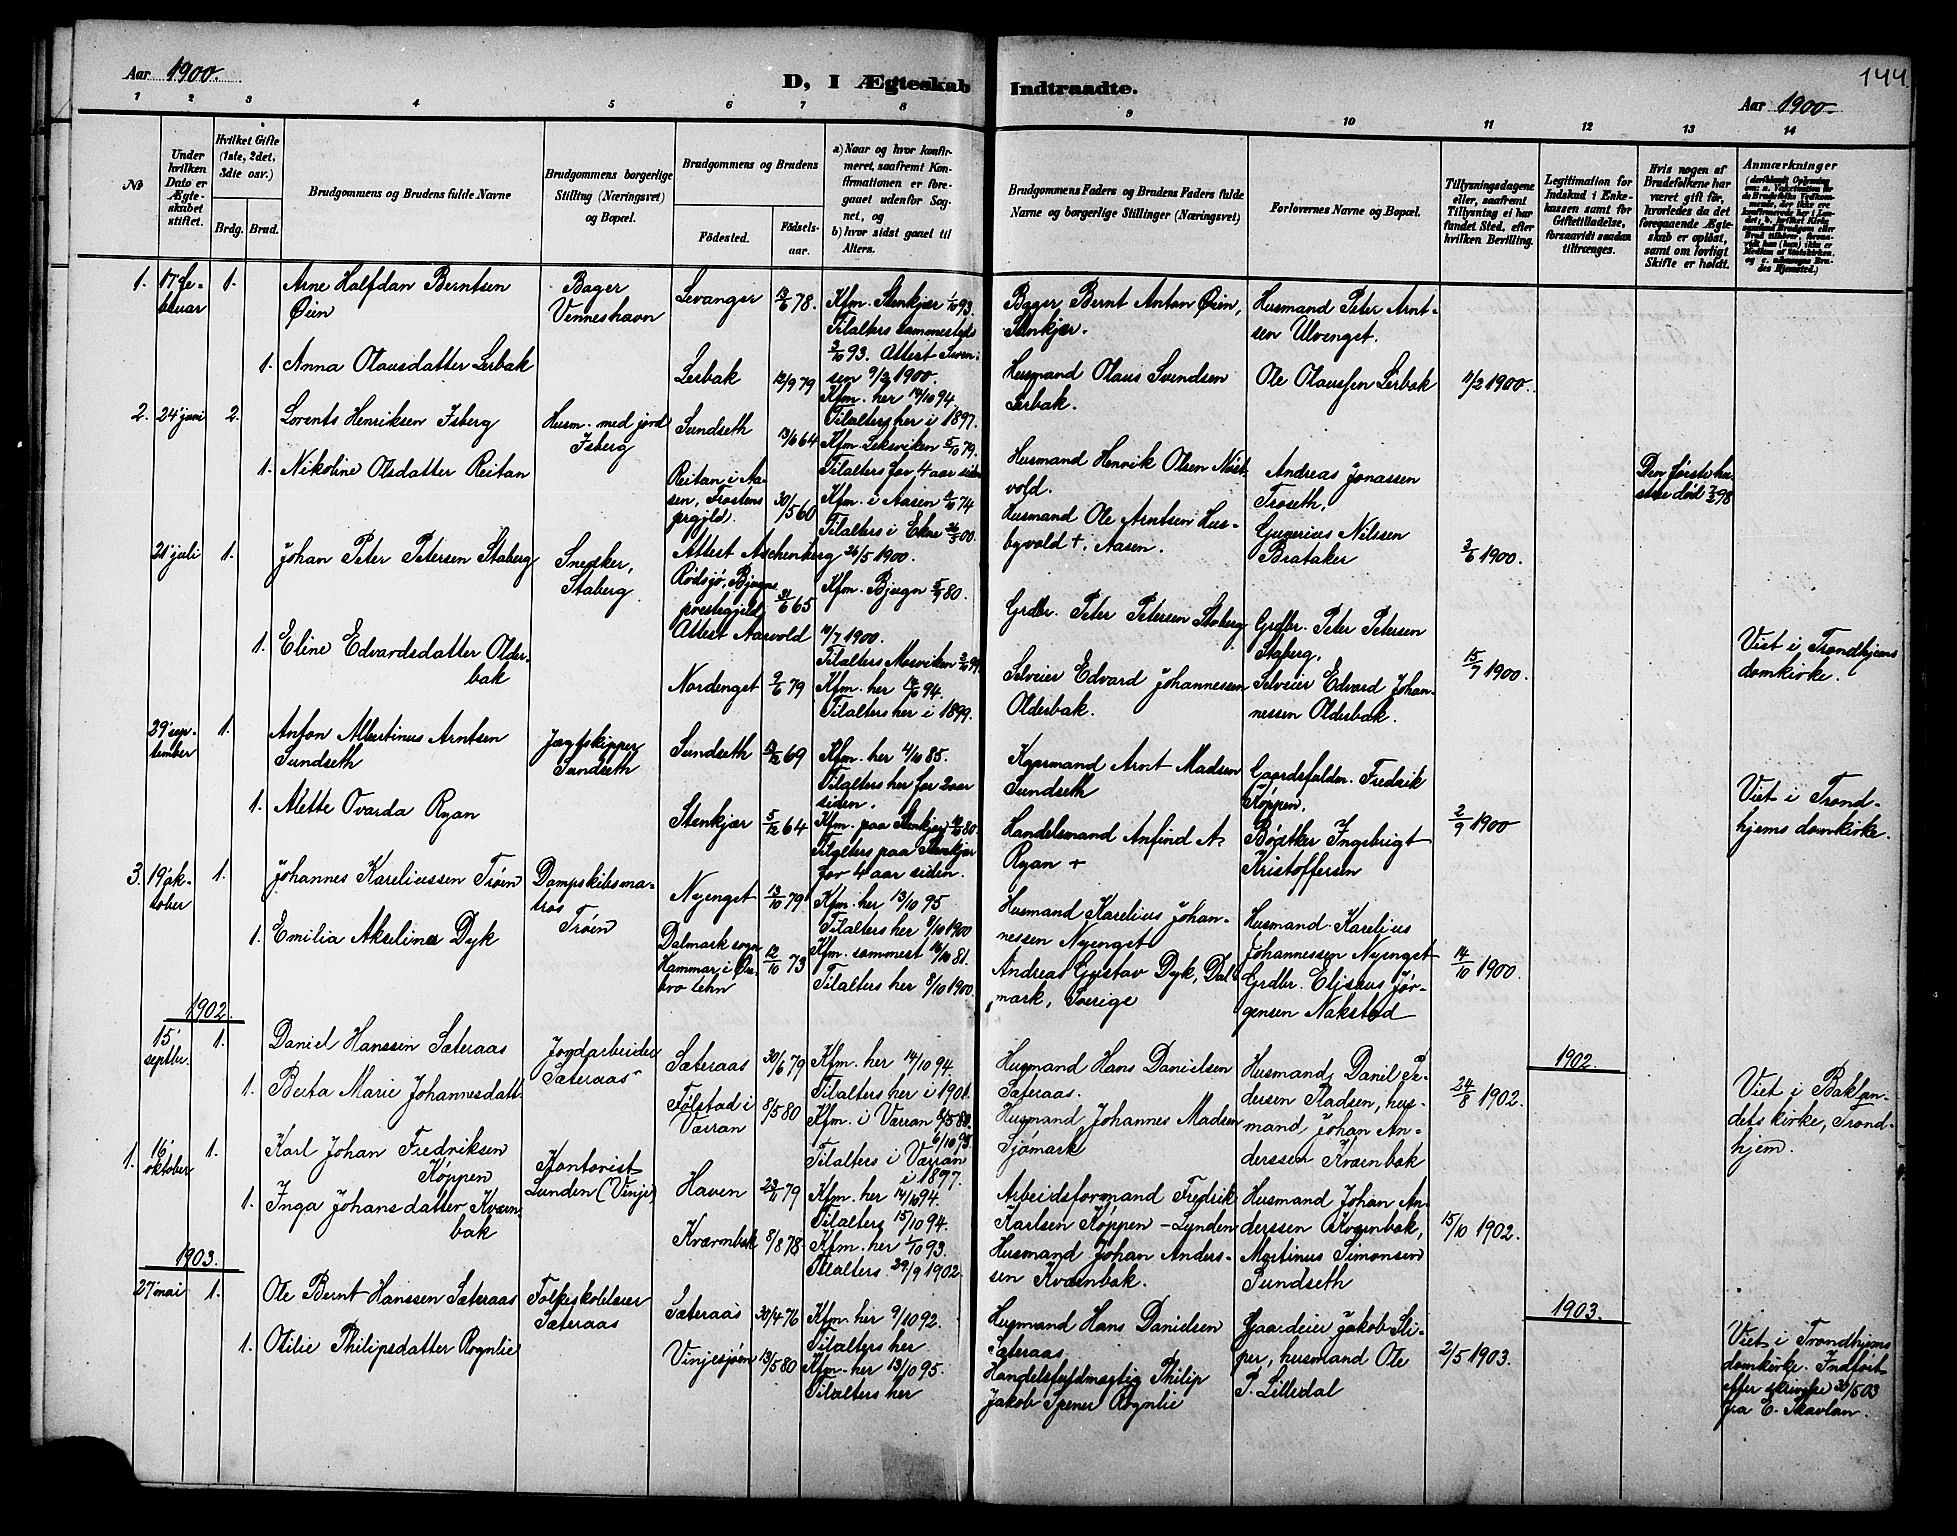 Aar 1900.
D, I Ægteskab Indtraadte.
144
Aar 1900
1 2 3 4 5 6 7 8 9 10 11 12 13 14
No
Under hvilken Dato er Ægteskabet stiftet.
Hvilket Gifte (1ste, 2det, 3die osv.)
Brdg. Brud.
Brudgommens og Brudens fulde Navne
Brudgommens borgerlige Stilling (Næringsvei) og Bopæl.
Brudgommens og Brudens
Fødested.
Fødselsaar.
a) Naar og hvor konfirmeret, saafremt Konfirmationen er foregaaet udenfor Sognet, og
b) hvor sidst gaaet til Alters.
Brudgommens Faders og Brudens Faders fulde Navne og borgerlige Stillinger (Næringsvei)
Forlovernes Navne og Bopæl.
Tillysningsdagene eller, saafremt Tillysning ei har fundet Sted, efter hvilken Bevilling.
Legitimation for Indskud i Enkekassen samt for Giftetilladelse, forsaavidt saadan tiltrænges.
Hvis nogen af Brudefolkene har været gift før, hvorledes da det foregaaende Ægteskab er opløst, samt om lovligt Skifte er holdt.
Anmærkninger
1. 17 februar 1.
Arne Halfdan Berntsen
Øien
Bager
Venneshavn
Levanger
13/6 78.
Kfm. Stenkjær 1/10 93.
Tilalters sammesteds
3/10 93. Attest Svensen 9/2 1900.
Bager Bernt Anton Øien,
Stenkjær.
Husmand Peter Arntsen Ulvenget.
1. Anna Olausdatter Lerbak
Lerbak
12/9 79
Kfm. her 14/10 94.
Tilalters her i 1897.
Husmand Olaus Svendsen
Lerbak.
Ole Olaussen Lerbak
11/2 1900.
2. 24 juni 2.
Lorents Henriksen Isberg
Husm. med jord
Isberg
Sundseth
13/6 64
Kfm. Leksviken 5/10 79.
Tilalters for 4 aar siden
Husmand Henrik Olsen Næstvold.
Andreas Jonassen
Troseth,
Den første hustru død 7/3 98
1. Nikoline Olsdatter Reitan
Reitan i Aasen, Frostens prgjld.
30/5 60
Kfm. i Aasen 4/10 74
Tilalters i Ekne 24/5 00.
Attest Aschenberg 26/5 1900.
Husmand Ole Arntsen Husbyvold +, Aasen.
Gunerius Nilssen
Brataker
3/6 1900.
21 juli 1.
Johan Peter Petersen Staberg
Snedker,
Staberg
Rødsjø, Bjugns
prestegjeld
21/6 65
Kfm. Bjugn 5/9 80.
Attest Aasvold 10/7 1900.
Tilalters Mosviken 3/10 99
Grdbr. Peter Petersen Staberg
Grdbr. Peter Petersen
Staberg,
Viet i Trondhjems
domkirke.
1. Eline Edvardsdatter Olderbak
Nordenget
9/6 79
Kfm. her 14/10 94.
Tilalters her i 1899.
Selveier Edvard Johannessen
Olderbak.
Selveier Edvard Johannessen Olderbak.
15/7 1900.
29 september 1.
Anton Albertinus Arntsen
Sundseth
Jægtskipper
Sundseth
Sundseth
13/12 69
Kfm. her 4/10 85.
Tilalters her for 2 aar
siden.
Kaarmand Arnt Madsen
Sundseth
Gaardsfuldm. Fredrik
Køppen.
Viet i Trondhjems domkirke.
1. Alette Ovarda Ryan
Stenkjær
5/12 64
Kfm. paa Stenkjær 10/10 80.
Tilalters paa Stenkjær
for 4 aar siden.
Handelsmand Anfind A.
Ryan +
Bødtker Ingebrigt
Kristoffersen
2/9 1900
3. 19 oktober 1.
Johannes Kareliussen Trøen
Dampskibsmatros
Trøen
Nyenget
13/10 79
Kfm. her 13/10 95
Tilalters her 8/10 1900
Husmand Karelius Johannessen Nyenget
Husmand Karelius
Johannessen Nyenget
1. Emilia Akselina Dyk
Dalmark sogn
Hammar i Ørebro lehn
12/10 73
Kfm. sammest 16/10 81.
Tilalters her 8/10 1900.
Andreas Gustav Dyk, Dalmark, Sverige
Grdbr. Eliseus Jørgensen Nakstad
14/10 1900.
1902.
15 septbr. 1.
Daniel Hanssen Sæteraas
Jordarbeider
Sæteraas
Sæteraas
30/6 79
Kfm. her 14/10 94.
Tilalters her i 1901.
Husmand Hans Danielsen
Sæteraas.
Husmand Daniel Pedersen Stadsen, husmand Johan Anderssen Kværnbak
1902.
1. Berta Marie Johannesdatt.
Følstad i
Værran
8/5 80
Kfm. i Værran
6/10 95.
Tilalters i Værran
i 1897.
Husmand Johannes Madsen
Sjømark
24/8 1902.
Viet i Baklandets kirke, Trondhjem.
1. 16 oktober 1.
Karl Johan Fredriksen
Køppen
Kontorist
Lunden (Vinje)
Haven
23/11 79
Kfm. her 14/10 94.
Tilalters 15/10 94.
Arbeidsformand Fredrik
Karlsen Køppen - Lunden
Husmand Johan Anderssen Kværnbak,
1. Inga Johansdatter Kværnbak
Kværnbak
8/8 78
Kfm. her 1/10 93.
Tilalters 29/9 1902.
Husmand Johan Anderssen Kværnbak.
Martinus Simonsen
Sundseth
15/10 1902.
1903.
27 mai 1.
Ole Bernt Hanssen Sæteraas
Folkeskolelærer
Sæteraas
Sæteraas
30/4 76
Kfm. her 9/10 92.
Tilalters her
Husmand Hans Danielsen
Sæteraas
Gaardeier Jakob Sliper, husmand Ole
P. Lilledal
1903.
1. Otilie Philipsdatter Rognlie
Vinjesjøen
13/5 80
Kfm. her 13/10 95.
Tilalters her
Handelsfuldmægtig Philip
Jakob Spener Rognlie
2/5 1903.
Viet i Trondhjems
domkirke. Indført
efter skrivelse 30/5 03
fra E. Skavlan.